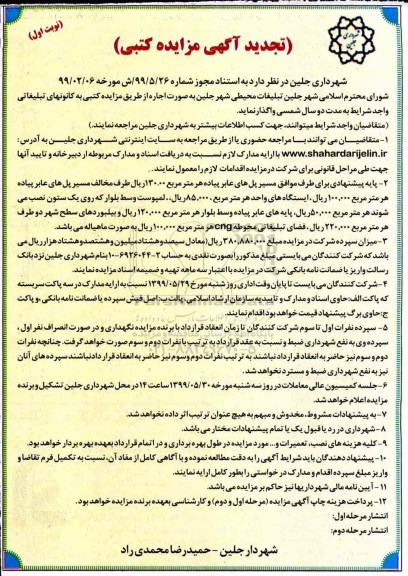 (نوبت اول)
(تجدید آگهی مزایده کتبی)
شهرداری جلین در نظر دارد به استناد مجوز شماره ۹۹/۵/۲۶/ش مورخه ۹۹/۰۲/۰۶
شورای محترم اسلامی شهر جلین تبلیغات محیطی شهر جلین به صورت اجاره از طریق مزایده کتبی به کانونهای تبلیغاتی
واجد شرایط به مدت دو سال شمسی واگذار نماید.
(متقاضیان واجد شرایط میتوانند، جهت کسب اطلاعات بیشتر به شهرداری جلین مراجعه نمایند.)
۱- متقاضیان می توانند با مراجعه حضوری یا از طریق مراجعه به سایت اینترنتی شهرداری جلین به آدرس:
www.shahardarijelin.ir با ارایه مدارک لازم نسبت به دریافت اسناد و مدارک مربوطه از دبیرخانه و تایید آنها
جهت طی مراحل قانونی برای شرکت در مزایده اقدامات لازم را معمول نمایند.
۲- پایه پیشنهادی برای طرف موافق مسیر پل های عابر پیاده هر متر مربع ۱۳۰.۰۰۰ ریال طرف مخالف مسیر پل های عابر پیاده
هر متر مربع ۱۰۰,۰۰۰ ریال، ایستگاه های واحد هر متر مربع ۸۵,۰۰۰ ریال، لمپوست وسط بلوار که روی یک ستون نصب می
شوند هر متر مربع ۵۰,۰۰۰ ریال، پایه های عابر پیاده وسط بلوار هر متر مربع ۱۲۰,۰۰۰ ریال و بیلبوردهای سطح شهر دو طرف
هر متر مربع ۲۲۰,۰۰۰ ریال، فضای تبلیغاتی محوطه cng هر متر مربع ۱۰۰,۰۰۰ ریال به صورت ماهیاله می باشد.
۳- میزان سپرده شرکت در مزایده مبلغ ۳۸۰,۸۸۰,۰۰۰ ریال (معادل سیصد و هشتاد میلیون و هشتصد و هشتاد هزار ریال می
باشد که شرکت کنندگان می بایستی مبلغ مذکور را بصورت نقدی به حساب ۱۰۰۶۹۲۶۰۴۴۰۲ بنام شهرداری جلین نزد بانک
رسالت واریز یا ضمانت نامه بانکی شرکت در مزایده با اعتبار سه ماهه تهیه و ضمیمه اسناد مزایده نمایند.
۴- شرکت کنندگان می بایست تا پایان وقت اداری روز شنبه مورخ ۱۳۹۹/۰۵/۲۹ نسبت به ارایه مدارک در سه پاکت سربسته
که پاکت الف: حاوی اسناد و مدارک و تاییدیه سازمان ارشاد اسلامی، پاکت ب: اصل فیش سپرده یا ضمانت نامه بانکی، و پاکت
ج: حاوی برگ پیشنهاد قیمت خواهد بود اقدام نمایند.
۵- سپرده نفرات اول تا سوم شرکت کنندگان تا زمان انعقاد قرارداد با برنده مزایده نگهداری و در صورت انصراف نفر اول،
سپرده وی به نفع شهرداری ضبط و نسبت به عقد قرارداد به ترتیب با نفرات دوم و سوم صورت خواهد گرفت. چنانچه نفرات
دوم و سوم نیز حاضر به انعقاد قرارداد نباشند به ترتیب نفرات دوم و سوم نیز حاضر به انعقاد قرارداد نباشند سپرده های آنان
نیز به نفع شهرداری ضبط و مسترد نخواهد شد.
۶- جلسه کمیسیون عالی معاملات در روز سه شنبه مورخه ۱۳۹۹/۰۵/۳۰ ساعت ۱۴ در محل شهرداری جلین تشکیل و برنده
مزایده اعلام خواهد شد.
۷- به پیشنهادات مشروط، مخدوش و مبهم به هیچ عنوان ترتیب اثر داده نخواهد شد.
۸- شهرداری در رد یا قبول یک یا تمام پیشنهادات مختار می باشد.
۹- کلیه هزینه های نصب، تعمیرات و... مورد مزایده در طول بهره برداری و در اتمام قرارداد بعهده بهره بردار خواهد بود.
۱۰- پیشنهاد دهندگان باید شرایط آگهی را به دقت مطالعه نموده و با آگاهی کامل از مفاد آن، نسبت به تکمیل فرم تقاضا و
واریز مبلغ سپرده اقدام و مدارک درخواستی را بطور کامل ارایه نمایند.
۱۱- آیین نامه مالی شهرداریها نیز حاکم بر مزایده می باشد.
۱۲- پرداخت هزینه چاپ آگهی مزایده (مرحله اول و دوم) و کارشناسی بعهده برنده مزایده خواهد بود.
انتشار مرحله اول:
انتشار مرحله دوم:
شهردار جلین - حمیدرضا محمدی راد